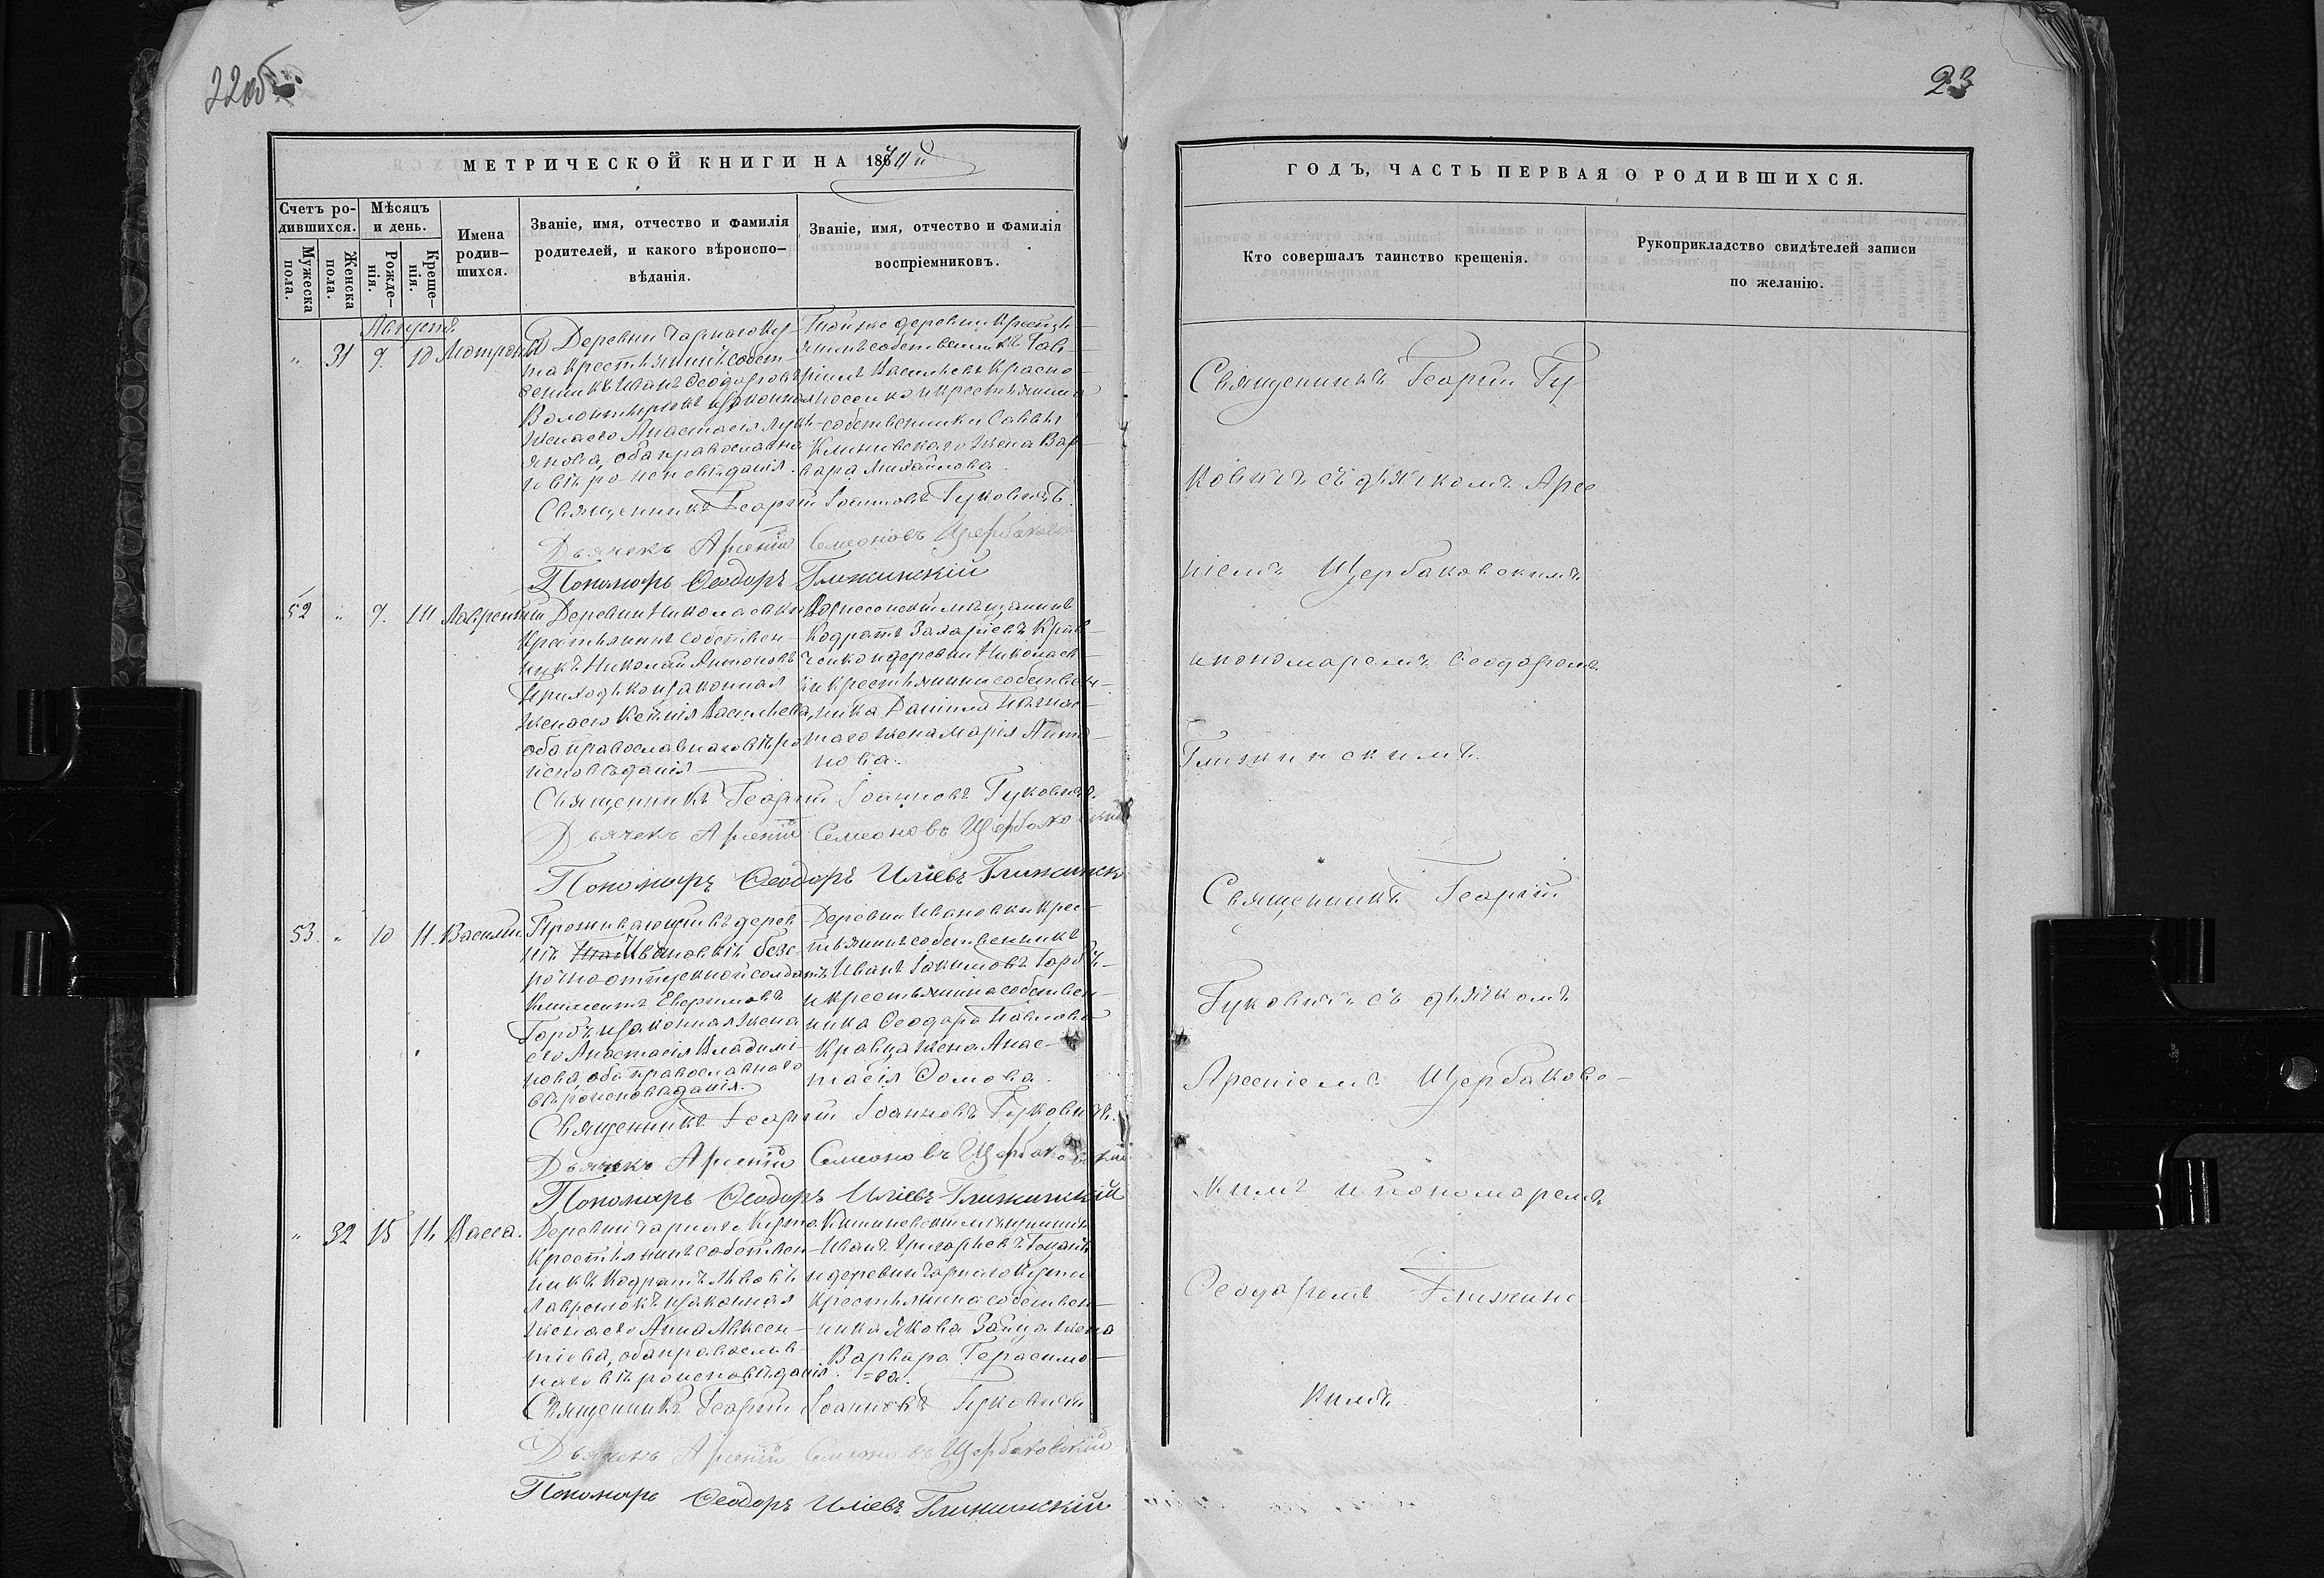 22об
МЕТРИЧЕСКОЙ КНИГИ НА 1870й
Счетъ ро-
дившихся.
Мужеска
пола.
Женска
пола.
Мѣсяцъ
и день.
Рожде-
нія.
Креще-
нія.
Имена
родив-
шихся.
Званіе, имя, отчество и фамилія
родителей, и какого вѣроиспо-
вѣданія.
Званіе, имя, отчество и фамилія
воспріемниковъ.
Августъ
" 31 9. 10 Мотрона
Деревни Чарнаго Ку-
та крестьянинъ собст-
венникъ Иванъ Ѳеодоровъ
и законная
жена его Анастасія Лукі-
янова, оба православна-
го вѣроисповѣданія.
Тойже деревни крестья-
нинъ собственникъ Гав-
ріилъ Васильевъ Красно-
носенко и крестьянина
собственника Саввы
Климовскаго жена Вар-
вара Михайлова.
Священникъ Георгій Іоанновъ Гуковичъ
Дьячекъ Арсеній Семеоновъ Щербаковскій
Пономарь Ѳеодоръ Глижинскій
52 " 9. 10 Лаврентій
Деревни Николаевки
крестьянинъ собствен-
никъ Николай Антоновъ
Приходько и законная
жена его Ксенія Васильева,
оба православнаго вѣро
исповѣданія
мѣщанинъ
Кодратъ Захаріевъ
и деревни Николаев-
ки крестьянина собствен-
ника Даніила
наго жена Марія Анто-
нова.
Священникъ Георгій Іоанновъ Гуковичъ.
Дьячекъ Арсеній Семеоновъ Щербаковскій
Пономарь Ѳеодоръ Иліевъ Глижинскій
53. " 10 11. Василій
Проживающій въ дерев-
нѣ Ивановкѣ безс-
рочноотпускной солдатъ
Климентъ Евѳимовъ
Горбъ и законная жена
его Анастасія Владимі-
рова, оба православнаго
вѣроисповѣданія.
Деревни Ивановки крес-
тьянинъ собственникъ
Иванъ Іакимовъ Горбъ
и крестьянина собствен-
ника Ѳеодора Павлова
Кравца жена Анас-
тасія Ѳомова.
Священникъ Георгій Іоанновъ Гуковичъ.
Дьячекъ Арсеній Семеоновъ Щербаковскій
Пономарь Ѳеодоръ Иліевъ Глижинскій
" 32 15 16 Васса.
Деревни Чарнаго Кута
крестьянинъ собствен-
никъ Кодратъ Львовъ
Лавренюкъ и законная
жена его Анна Авксен-
тіева, оба православ-
наго вѣроисповѣданія.
Кишиневскій мѣщанинъ
Иванъ Григорьевъ
и деревни Чарнаго Кута
крестьянина собствен-
ника Якова Зайца жена
Варвара Герасимо-
=ва.
Священникъ Георгій Іоанновъ Гуковичъ
Дьячекъ Арсеній Семеоновъ Щербаковскій
Пономарь Ѳеодоръ Иліевъ Глижинскій
23
ГОДЪ, ЧАСТЬ ПЕРВАЯ О РОДИВШИХСЯ.
Кто совершалъ таинство крещенія.
Рукоприкладство свидѣтелей записи
по желанію.
Священникъ Георгій Гу-
ковичъ съ дьячкомъ Арсе
ніемъ Щербаковскимъ
и пономаремъ Ѳеодоромъ
Глижинскимъ.
Священникъ Георгій
Гуковичъ съ дьячкомъ
Арсеніемъ Щербаковс-
кимъ и пономаремъ
Ѳеодоромъ Глижинс-
кимъ.